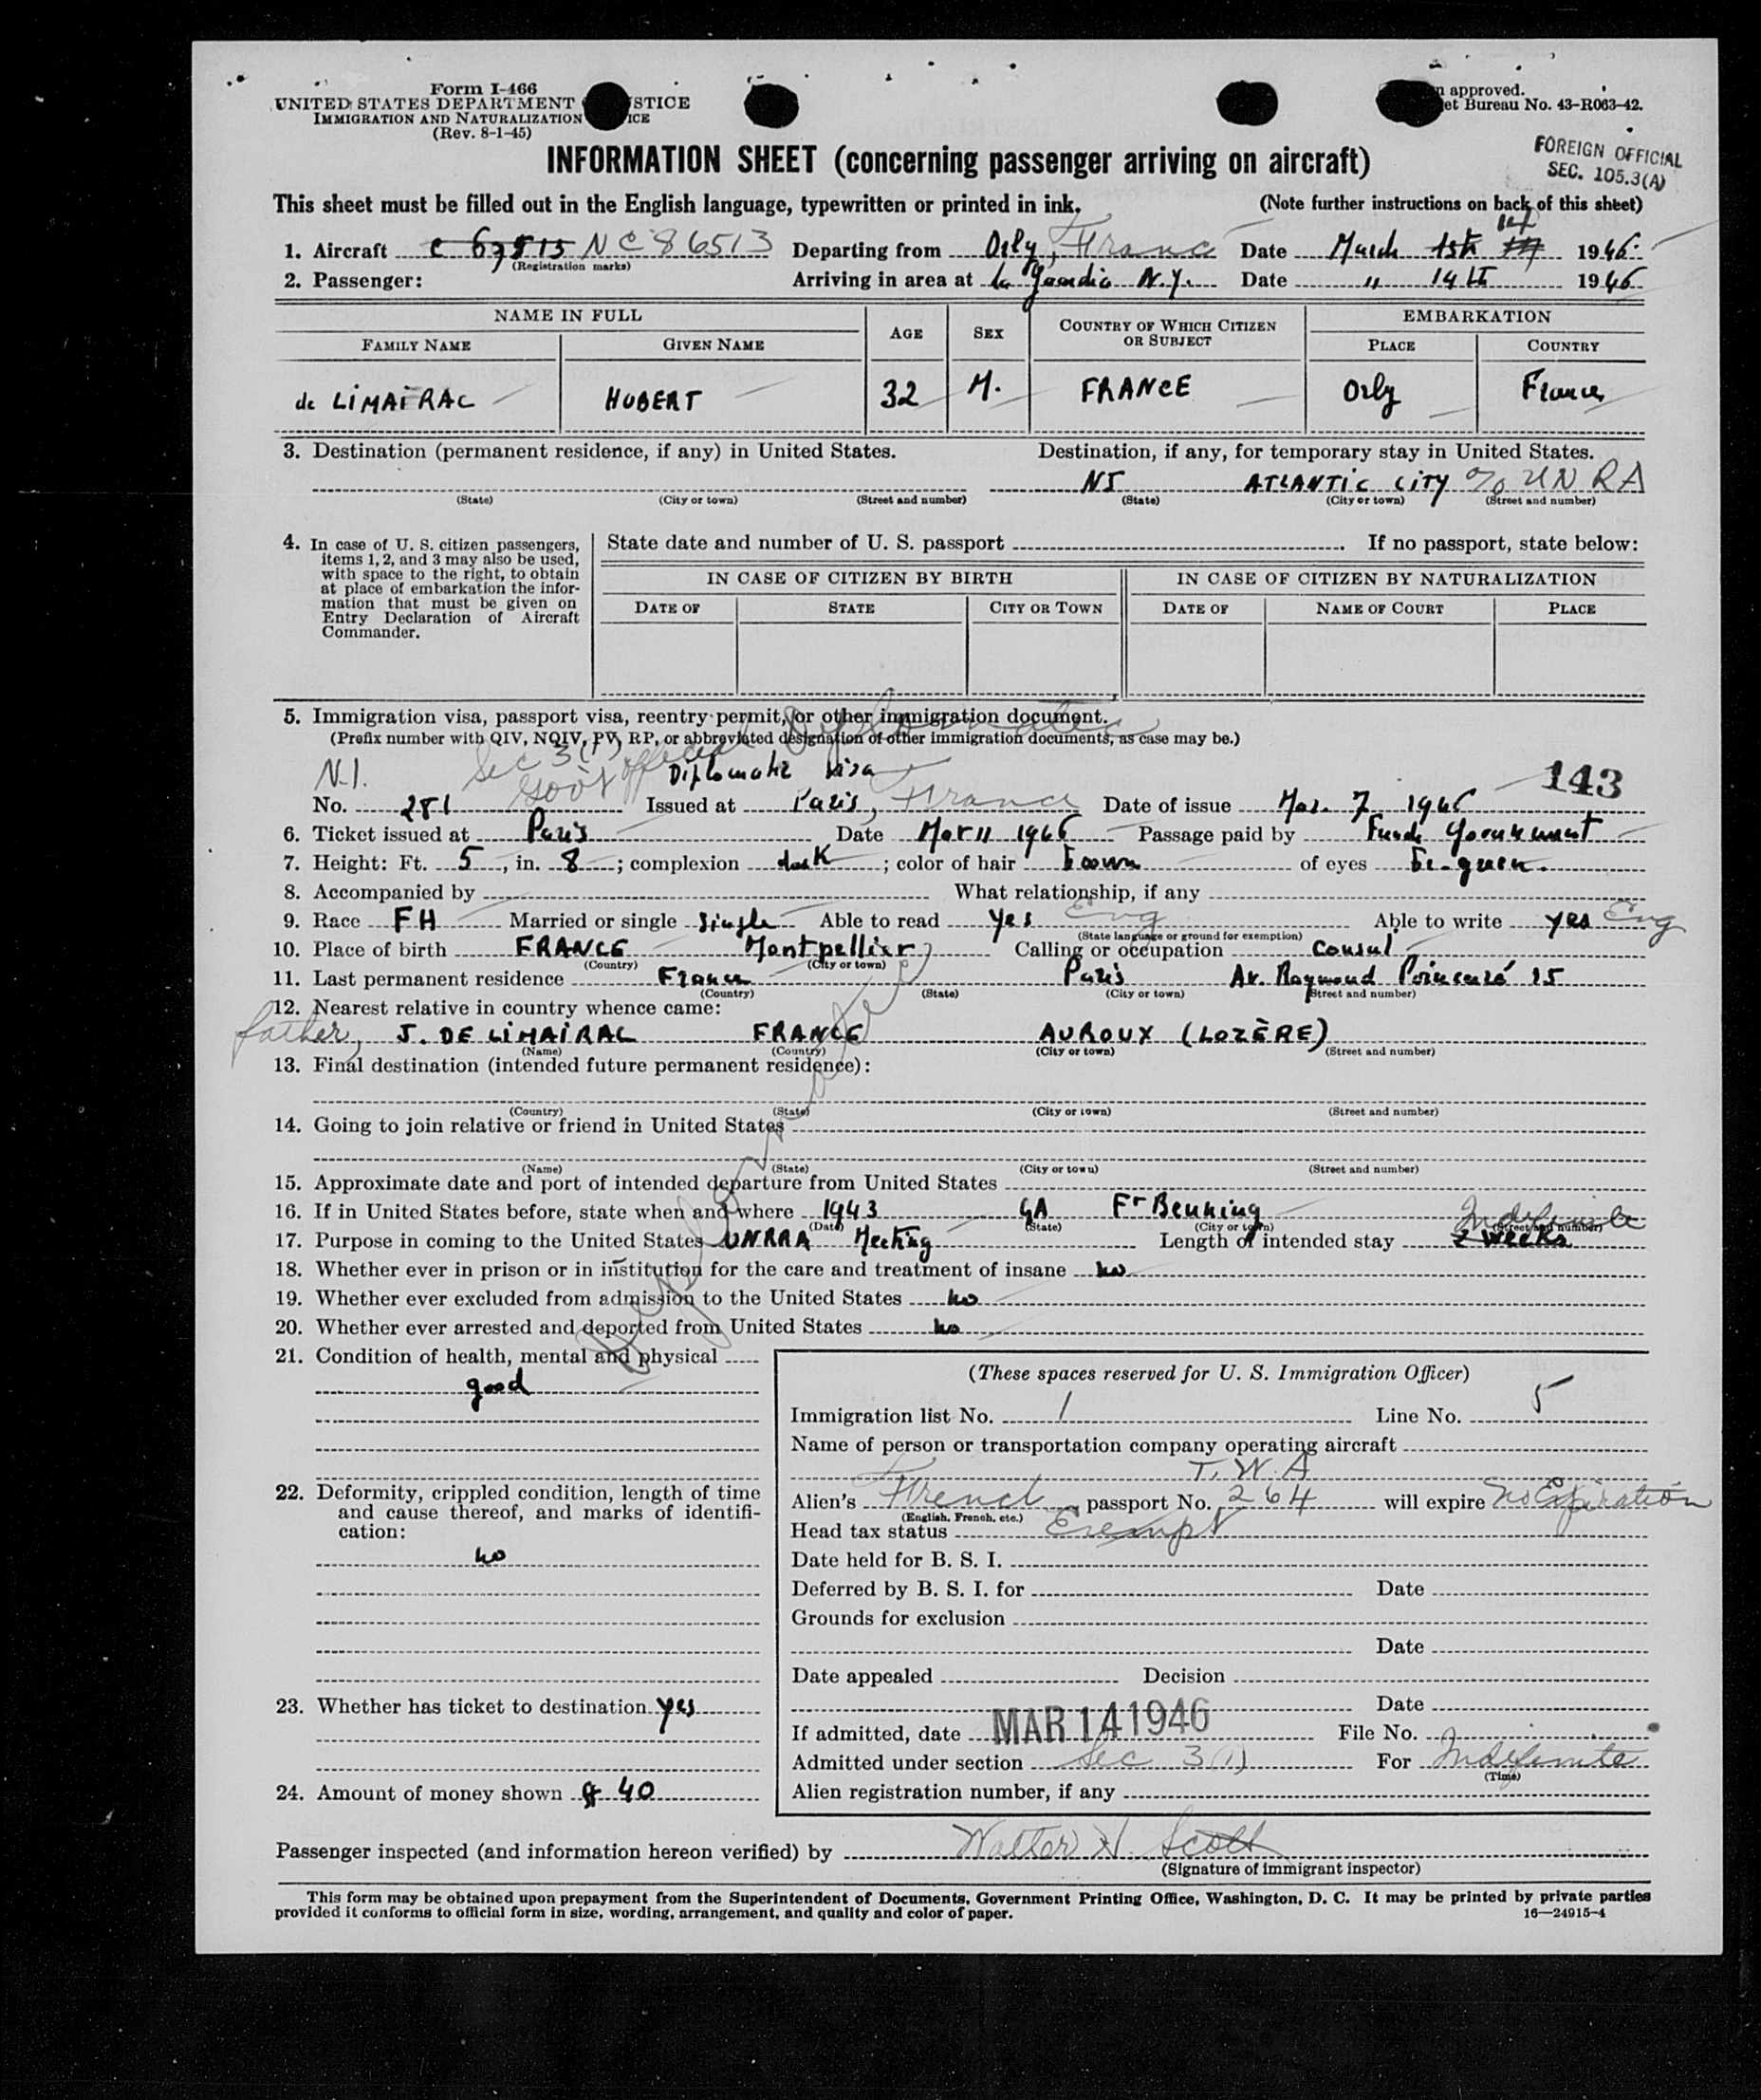 Form I-466
UNITED STATES DEPARTMENT STICE
IMMIGRATION AND NATURALIZATION ICE
(Rev. 8-1-45)
approved.
et Bureau No. 43-R063-42.
FOREIGN OFFICIAL
SEC. 105.3(A)
INFORMATION SHEET (concerning passenger arriving on aircraft)
This sheet must be filled out in the English language, typewritten or printed in ink. (Note further instructions on back of this sheet)
14
1. Aircraft NC86513 Departing from Orly, France Date March 1946
(Registration marks)
2. Passenger: Arriving in area at La Guardia N.Y. Date " 14 1946
NAME IN FULL AGE SEX COUNTRY OF WHICH CITIZEN OR SUBJECT EMBARKATION
FAMILY NAME GIVEN NAME PLACE COUNTRY
de LIMAIRAC HUBERT 32 M. FRANCE Orly France
3. Destination (permanent residence, if any) in United States. Destination, if any, for temporary stay in United States.
NJ ATLANTIC CITY % UNRA
(State) (City or town) (Street and number) (State) (City or town) (Street and number)
4. In case of U. S. citizen passengers, items 1, 2, and 3 may also be used, with space to the right, to obtain at place of embarkation the information that must be given on Entry Declaration of Aircraft Commander.
State date and number of U. S. passport . If no passport, state below:
IN CASE OF CITIZEN BY BIRTH IN CASE OF CITIZEN BY NATURALIZATION
DATE OF STATE CITY OR TOWN DATE OF NAME OF COURT PLACE
5. Immigration visa, passport visa, reentry permit, or other immigration document.
(Prefix number with QIV, NQIV, PV, RP, or abbreviated designation of other immigration documents, as case may be.)
N.I. Sec 3(1) Gov't official Diplomatic visa
143
No. 281 Issued at Paris, France Date of issue Mar. 7 1946
6. Ticket issued at Paris Date Mar 11 1946 Passage paid by French Government
7. Height: Ft. 5, in. 8; complexion dark; color of hair brown of eyes br-green.
8. Accompanied by What relationship, if any
9. Race FH Married or single single Able to read yes Eng Able to write yes Eng
(State language or ground for exemption)
10. Place of birth FRANCE Montpellier Calling or occupation Consul
(Country) (City or town)
11. Last permanent residence France Paris Av. Raymond Poincaré 15
(Country) (State) (City or town) (Street and number)
12. Nearest relative in country whence came:
father, J. DE LIMAIRAC FRANCE AUROUX (LOZÈRE)
(Name) (Country) (City or town) (Street and number)
13. Final destination (intended future permanent residence):
(Country) (State) (City or town) (Street and number)
14. Going to join relative or friend in United States
(Name) (State) (City or town) (Street and number)
15. Approximate date and port of intended departure from United States
16. If in United States before, state when and where 1943 GA Fr Benning
(Date) (State) (City or town) (Street and number)
Indefinite
17. Purpose in coming to the United States UNRRA Meeting Length of intended stay 2 weeks
18. Whether ever in prison or in institution for the care and treatment of insane no
19. Whether ever excluded from admission to the United States no
20. Whether ever arrested and deported from United States no
21. Condition of health, mental and physical
good
22. Deformity, crippled condition, length of time and cause thereof, and marks of identification:
no
23. Whether has ticket to destination yes
24. Amount of money shown $ 40
(These spaces reserved for U. S. Immigration Officer)
Immigration list No. 1 Line No. 5
Name of person or transportation company operating aircraft
T.W.A
Alien's French passport No. 264 will expire No Expiration
(English, French, etc.)
Head tax status Exempt
Date held for B. S. I.
Deferred by B. S. I. for Date
Grounds for exclusion
Date
Date appealed Decision
Date
If admitted, date MAR 14 1946 File No.
Admitted under section Sec 3(1) For Indefinite
(Time)
Alien registration number, if any
Passenger inspected (and information hereon verified) by Walter H. Scott
(Signature of immigrant inspector)
This form may be obtained upon prepayment from the Superintendent of Documents, Government Printing Office, Washington, D. C. It may be printed by private parties
provided it conforms to official form in size, wording, arrangement, and quality and color of paper. 16—24915-4